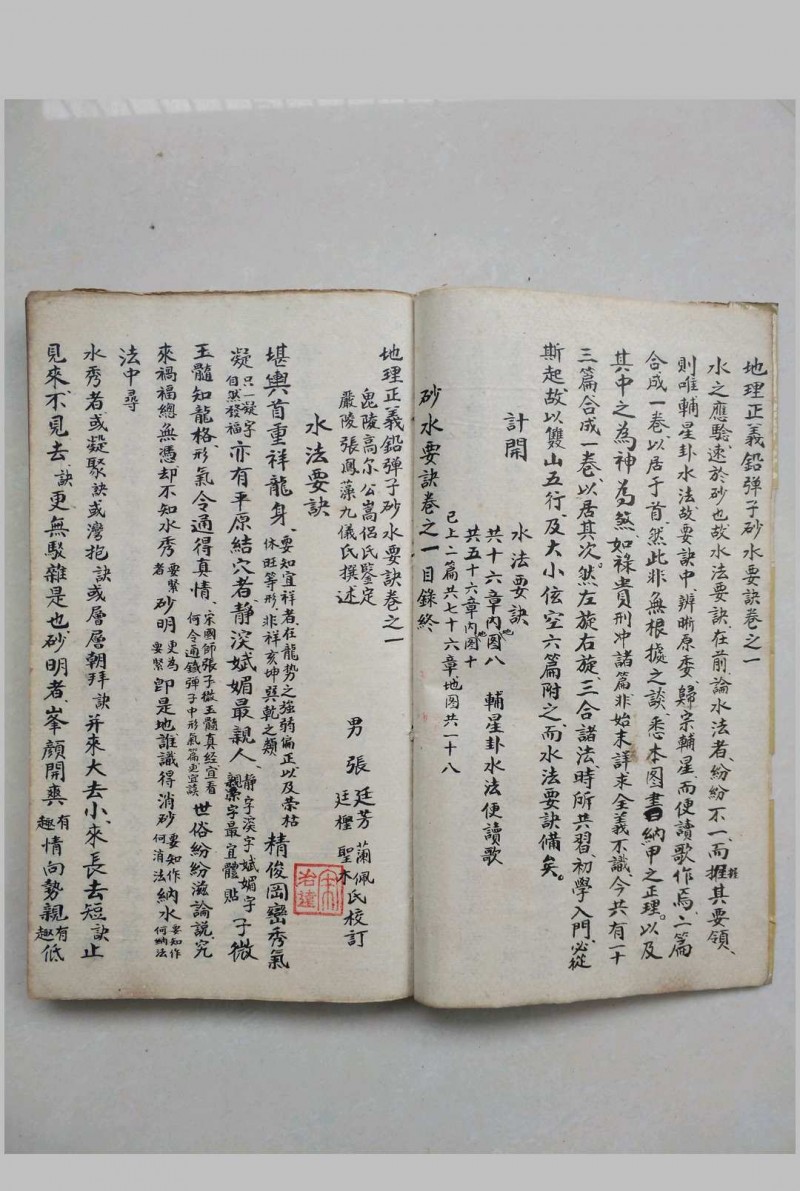 地理正義鉛彈子砂水要訣卷之一
水之應驗速於砂也故水法要訣、在前、論水法者、紛紛不一、而握其要領、
則唯輔星卦水法、故要訣中、辨晰原委、歸宗輔星、而便讀歌作焉、二篇
合成一卷、以居于首、然此非無根據之談、悉本图書納甲之正理。以及
其中之為神為煞、如祿貴刑冲諸篇、非始末詳求全義不識、今共有一十
三篇合成一卷、以居其次。然左旋右旋、三合諸法、時所共習、初學入門、必從
斯起、故以雙山五行、及大小佐空六篇附之、而水法要訣備矣。
計開
水法要訣 輔星卦水法便讀歌
共十六章內地图八
共五十六章內地图十
已上二篇共七十六章地图共一十八
砂水要訣卷之一目錄終
地理正義鉛彈子砂水要訣卷之一
毘陵高尔公嵩侣氏鑒定
嚴陵張鳳藻九儀氏撰述
男 張 廷芳 蘭佩 廷樫 聖木 氏校訂
水法要訣
堪輿首重祥龍身、要知宜祥者、在龍势之強弱偏正、以及荣枯休旺等形、非祥亥坤巽乾之類 精俊岡巒秀氣
凝只一凝字自然發福亦有平原結穴者、靜深斌媚最親人、靜字深字斌媚字親字最宜體貼 子微
玉髓知龍格、形氣令通得真情、宋國師張子微玉髓真经宜看何令通鐵彈子中形氣篇更宜讀 世俗紛紛滋論說、究
來禍福總無憑、却不知水秀者要緊砂明更為要緊即是地、誰識得消砂要知作何消法納水要知作何納法
法中尋
水秀者、或凝聚、訣或灣抱、訣或層層朝拜、訣并來大去小、來長去短、訣止
見來、不見去、訣更無駁雜是也、砂明者、峯顏開爽、有趣情向勢親、有趣低
宋治達